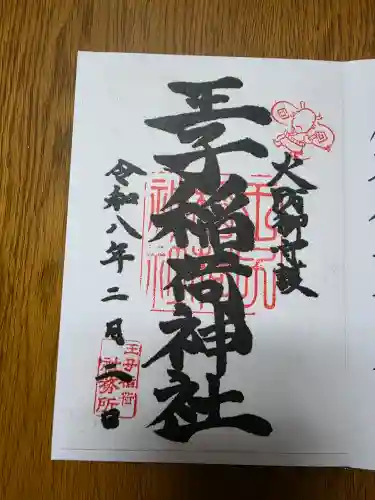 火防御守護
王子稲荷神社
令和八年二月二日
王子稲荷
社務所